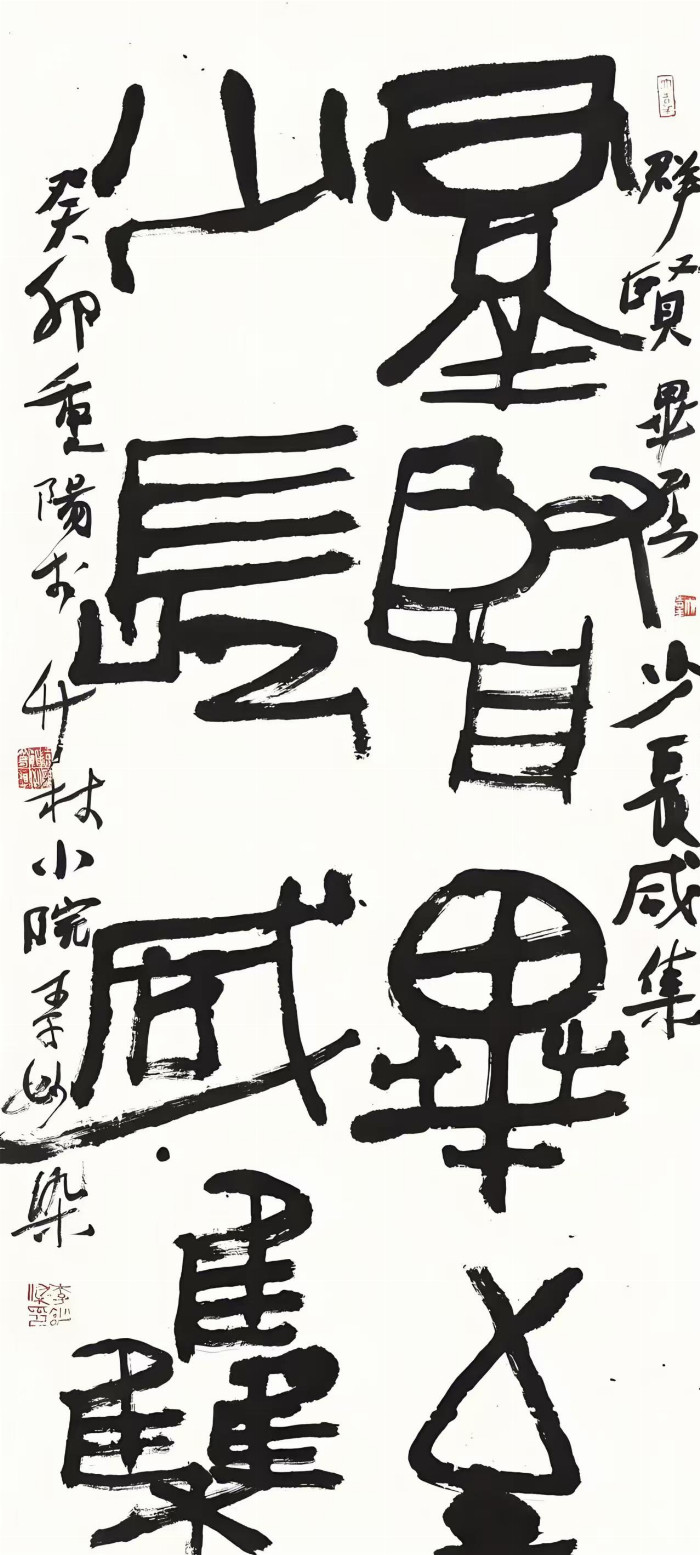 群賢畢至
少長咸集
群賢畢至
少長咸集
癸卯重陽於竹林小院李妙染